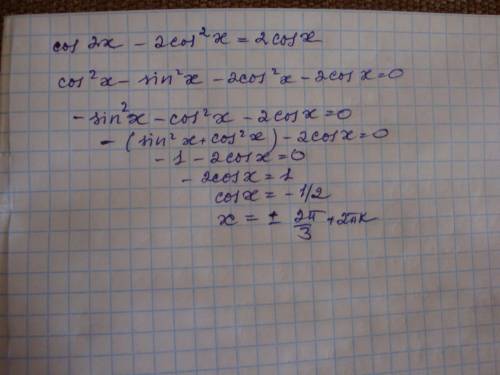 cos 2x - 2cos²x = 2cosx
cos²x - sin²x - 2cos²x - 2cos x = 0
- sin²x - cos²x - 2cosx = 0
- (sin²x + cos²x) - 2cosx = 0
- 1 - 2cosx = 0
- 2cosx = 1
cosx = - 1/2
x = ± 2π/3 + 2πk